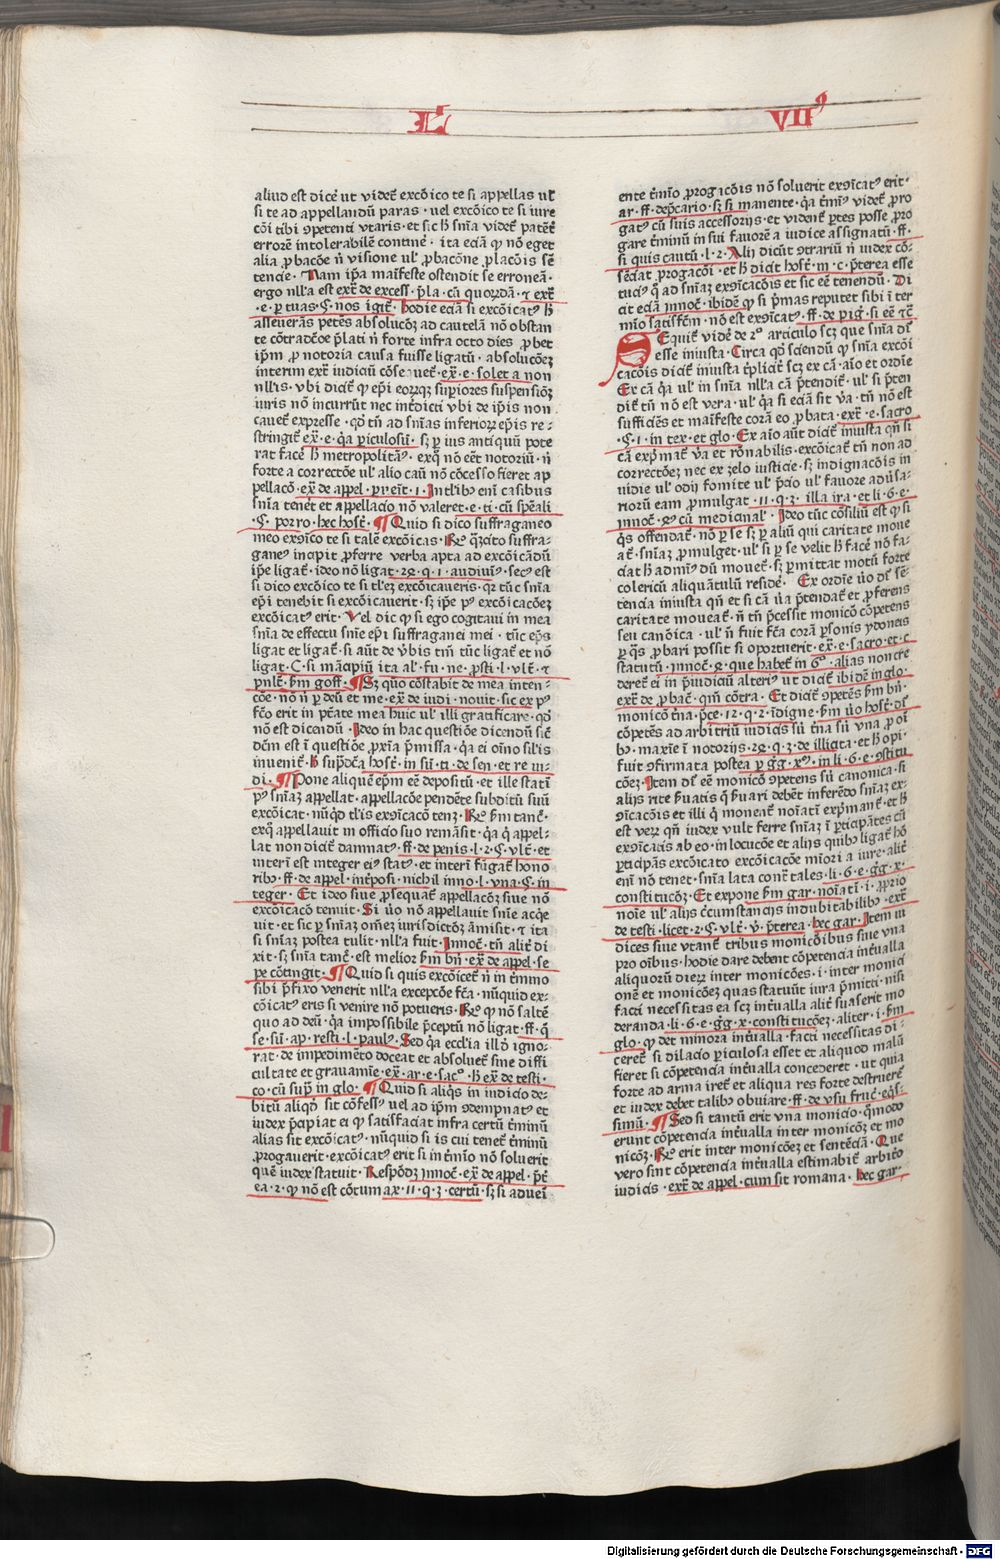 L VIIꝰ
aliud est dicē ut videt᷑ excōico te si appellas ul᷑
si te ad appellandū paras · uel excōico te si iure
cōi tibi ꝯpetenti vtaris · et sic h̄ sn̄ia videt᷑ patēt᷑
errorē intolerabilē continē · ita eciā ꝙ nō eget
alia ꝓbacōe n̄ visione ul᷑ ꝓbacōne ꝓlacōis sē
tencie · Nam ip̄a maīfeste ostendit se erroneā ·
ergo nll᷑a est ext᷑ de excess · p̄la · cū quorūdā · ⁊ ext᷑
· e · ꝑ tuas · ꝯ · nos igit᷑ · hodie eciā si excōicat᷑ h̄
asseuerās petēs absolucōꝫ ad cautelā nō obstan
te cōtradcōe p̄lati n̄ forte infra octo dies ꝓbet
ip̄m ꝓ notoria causa fuisse ligatū · absolucōeꝫ
interim ext᷑ iudiciū cōseꝗuet᷑ · ex᷑ · e · solet a non
nll᷑is · vbi dicit᷑ ꝙ ep̄i eorūꝗꝫ suꝑiores suspensiōꝫ
iuris nō incurrūt nec int᷑dicti vbi de ip̄is non
cauet᷑ expresse · qd᷑ tn̄ ad sn̄ias inferioꝝ ep̄is re⸗
stringit᷑ ex᷑ · e · q̄a ꝑiculosū · sꝫ ꝑ ius antiquū pote
rat facē h̄ metropolitāꝰ · exq̄ nō eēt notoriū · n̄
forte a correctōe ul᷑ alio caū nō cōcesso fieret ap
pellacō · ex᷑ de appel · ꝑuēit · i · Intlib᷑ enī casibus
sn̄ia tenet᷑ et appellacio nō valeret · e · ti · cū sꝑeāli
· ꝯ · porro · hec host᷑ · ¶ Quid si dico suffraganeo
meo exꝯico te si talē excōicas · R̄o q̄ꝫcito suffra⸗
ganeꝰ incipit ꝓferre verba apta ad excōicādū
ip̄e ligat᷑ · ideo nō ligat · 2ꝗ · q · 1 · audiuimꝰ · secꝰ est
si dico excōico te si tl᷑eꝫ excōicaueris · qꝛ tūc sn̄ia
ep̄i tenebit si excōicauerit · sꝫ ip̄e pꝰ excōicacōeꝫ
excōicatꝰ erit · Vel dic ꝙ si ego cogitaui in mea
sn̄ia de effectu sn̄ie ep̄i suffraganei mei · tūc ep̄s
ligat et ligat᷑ · si aūt de v̄bis tm̄ tūc ligat᷑ et nō
ligat · C · si mācipiū ita al᷑ · fu · ne · ꝓsti · l · vlt᷑ · ⁊
pnlt᷑ · ẜm goff · ¶ Sꝫ quō cōstabit de mea inten⸗
cōe · nō n̄ ꝑ deū et me · ex᷑ de iudi · nouit · sic ex pꝰ
fc̄o erit in pt̄ate mea huic ul᷑ illi gratificare · qd᷑
nō est dicendū · Ideo in hac questiōe dicendū sic᷑
dēm est ī questiōe ꝓxīa p̄missa · q̄a ei oīno sil᷑is
inuenit᷑ · h̄ supdc̄a host᷑ · in sū · ti · de sen · et re iu⸗
di · ¶ Pone aliquē ep̄m eē depositū · et ille statī
pꝰ sn̄iaꝫ appellat · appellacōe pendēte subditū suū
excōicat · nūqd᷑ tl᷑is exꝯicacō tenꝫ · R̄o ẜm tanc᷑ ·
exq̄ appellauit in officio suo remāsit · q̄a q̄ appel⸗
lat non dicit᷑ damnatꝰ · ff · de penis · l · 2 · ꝯ · vlt᷑ · et
interī est integer eiꝰ statꝰ · et interī fūgat᷑ hono
ribꝰ · ff · de appel · int᷑posi · nichil inno · l · vna · ꝯ · in
teger · Et ideo siue ꝓsequat᷑ appellacōꝫ siue nō
excōicacō tenuit · Si ūo nō appellauit sn̄ie acq̄e
uit · et sic ꝑ sn̄iaꝫ om̄eꝫ iurisdictōꝫ āmisit · ⁊ ita
si sn̄iaꝫ postea tulit · nll᷑a fuit · Innoc᷑ · tn̄ alit᷑ di
xit · sꝫ sn̄ia tanc᷑ · est melior ẜm bn̄ · ex᷑ de appel · se
pe cōtingit · ¶ Quid si quis excōicet᷑ n̄ in t᷑mīo
sibi p̄fixo venerit nll᷑a excepcōe fc̄a · nūquid ex⸗
cōicatꝰ eris si venire nō potueris · R̄o ꝙ nō saltē
quo ad deū · q̄a impossibile p̄ceptū nō ligat · ff · q̄
se · sū · ap · resti · l · paulꝰ · Sed q̄a eccl᷑ia illd᷑ igno⸗
rat · de impedimēto doceat et absoluet᷑ sine diffi
cultate et grauamīe · ex᷑ · ar · e · sacꝰ · h̄ ex᷑ de testi ·
co · cū suꝑ in glo · ¶ Quid si aliq̄s in iudicio de⸗
bitū aliqd᷑ sit cōfessꝰ vel ad ip̄m ꝯdempnatꝰ et
iudex p̄cipiat ei ꝙ satisfaciat infra certū t᷑minū
alias sit excōicatꝰ · nūquid si is cui tenet᷑ t᷑minū
ꝓrogauerit · excōicatꝰ erit si in t᷑mīo nō soluerit
quē iudex statuit · Respōdꝫ Innoc᷑ · ex᷑ de appel · p̄t᷑
ea · 2 · ꝙ nō est cōtum ax · 11 · q · 3 · certū · sꝫ si adueī
ente t᷑mīo ꝓrogacōis nō soluerit exꝯicatꝰ erit ·
ar · ff · dep̄cario · sꝫ si manente · q̄a t᷑mīꝰ videt᷑ ꝓro
gatꝰ cū suis accessorijs · et vident᷑ ꝑtes posse ꝓro
gare t᷑minū in sui fauorē a iudice assignatū · ff ·
si quis cautū · l · 2 · Alij dicūt ꝯtrariū n̄ iudex cō⸗
sēciat ꝓrogacōi · et h̄ dicit host᷑ · in · c · p̄terea esse
tuciꝰ q̄ ad sn̄iaꝫ exꝯicacōis et sic eē tenendū · Di
cit eciā Innoc᷑ · ibidē ꝙ si p̄mas reputet sibi ī ter
mīo satisfc̄m · nō est exꝯicatꝰ · ff · de pig᷑ · si eē ⁊c̄
SEquit᷑ vidē de 2ꝰ articulo scꝫ que sn̄ia dr᷑
esse iniusta · Circa qd᷑ sciendū ꝙ sn̄ia excōi
cacōis dicit᷑ iniusta tp̄licit᷑ scꝫ ex cā · aīo et ordīe
Ex cā q̄a ul᷑ in sn̄ia nll᷑a cā p̄tendit᷑ · ul᷑ si p̄ten
dit᷑ tn̄ nō est vera · ul᷑ q̄a si eciā sit v̄a · tn̄ nō est
sufficiēs et maīfeste corā eo ꝓbata · ext᷑ · e · sacro
· ꝯ · 1 · in tex · et glo · Ex aīo aūt dicit᷑ iniusta qn̄ si
cā exp̄mat᷑ v̄a et rōnabilis · excōicat᷑ tn̄ non ad
correctōeꝫ nec ex zelo iusticie · sꝫ indignacōis in
uidie ul᷑ odij fomite ul᷑ p̄cio ul᷑ fauore adu᷑sa⸗
riorū eam ꝓmulgat · 11 · q · 3 · illa ira · et li · 6 · e ·
Innoc᷑ · ꝗꝰ cū medicinal᷑ · Ideo tūc cōsiliū est ꝙ si
q̄s offendat᷑ · nō ꝑ se sꝫ ꝑ aliū qui caritate moue
at᷑ · sn̄iaꝫ ꝓmulget · ul᷑ si ꝑ se velit h̄ facē nō fa⸗
ciat h̄ admīꝰ dū mouet᷑ · sꝫ ꝑmittat motū forte
colericū aliquātulū residē · Ex ordīe ūo dr᷑ sē⸗
tencia iniusta qn̄ et si cā ūa p̄tendat᷑ et ꝓferens
caritate moueat᷑ · n̄ tn̄ p̄cessit monicō cōpetens
seu canōica · ul᷑ n̄ fuit fc̄a corā ꝑsonis ydoneis
ꝑ q̄s ꝓbari possit si oportuerit · ex᷑ · e · sacro · et · c
statutū · Innoc᷑ · ꝗ · que habet᷑ in 6ꝰ · alias non cre
deret᷑ ei in p̄iudiciū alteriꝰ ut dicit᷑ ibidē in glo ·
ext᷑ de ꝓbac᷑ · qm̄ cōtra · Et dicit᷑ ꝯpetēs ẜm bn̄ ·
monicō t᷑na · p̄ce · 12 · q · 2 · īdigne · ẜm ūo host᷑ · dr᷑
cōpetēs ad arbitriū iudicis sū t᷑na sū vna ꝓ oī
bꝰ · maxīe ī notorijs · 2ꝗ · q · 3 · de illicita · et h̄ opī ·
fuit ꝯfirmata postea ꝑ g̊g · xꝰ · in li · 6 · e · ꝯstitu
cōeꝫ · Item dr᷑ eē monicō ꝯpetens sū canonica · si
alijs rite ẜuatis q̄ ẜuari debēt inferēdo sn̄iaꝫ ex⸗
ꝯicacōis et illi q̄ monent᷑ noīatī exp̄mant᷑ · et h̄
est veꝝ qn̄ iudex vult ferre sn̄iaꝫ ī ꝑticipātes cū
exꝯicatis ab eo · in locucōe et alijs quibꝰ ligat᷑ hō
ꝑticipās excōicato excōicacōe mīori a iure · alit᷑
enī nō tenet · sn̄ia lata conē tales · li · 6 · e · g̊g · x ·
constitucōꝫ · Et expone ẜm gar · noīatī · i · ꝓprio
noīe ul᷑ alijs cc̄umstancijs indubitabilibꝰ · ext᷑
de testi · licet · 2 · ꝯ · vlt᷑ · v᷑ · p̄terea · hec gar · Item iu
dices siue vtant᷑ tribus monicōibus siue vna
pro oībus · hodie dare debent cōpetencia int᷑ualla
aliquorū dieꝝ inter monicōes · i · inter monici
onē et monicōeꝫ quas statuūt iura p̄mitti · nisi
facti necessitas ea scꝫ int᷑ualla alit᷑ suaserit mo
deranda · li · 6 · e · g̊g · x · constitucōeꝫ · aliter · i · ẜm
glo · ꝙ det minora int᷑ualla · facti necessitas di⸗
ceret᷑ si dilacio ꝑiculosa esset et aliquod malū
fieret si cōpetencia int᷑ualla concederet · ut quia
forte ad arma iret᷑ et aliqua res forte destrueret᷑
et iudex debet talibꝰ obuiare · ff · de vsu fruc᷑ · eq̄s⸗
simū · ¶ Sed si tantū erit vna monicio · q̄modo
erunt cōpetencia int᷑ualla inter monicōeꝫ et mo
nicōꝫ · R̄o erit inter monicōeꝫ et sentēciā · Que
vero sint cōpetencia int᷑ualla estimabit᷑ arbitō
iudicis · ext᷑ de appel · cum sit romana · hec gar ·
Digitalisierung gefördert durch die Deutsche Forschungsgemeinschaft - DFG